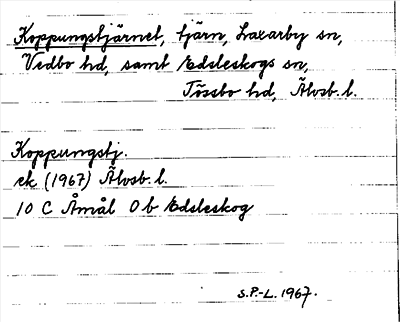 Koppungstjärnet, tjärn, Laxarby sn,
Vedbo hd, samt Edsleskogs sn,
Tössbo hd, Älvsb. l.
Koppungstj.
ek (1967) Älvsb. l.
10 C Åmål 0 b Edsleskog
S.P.-L. 1967.